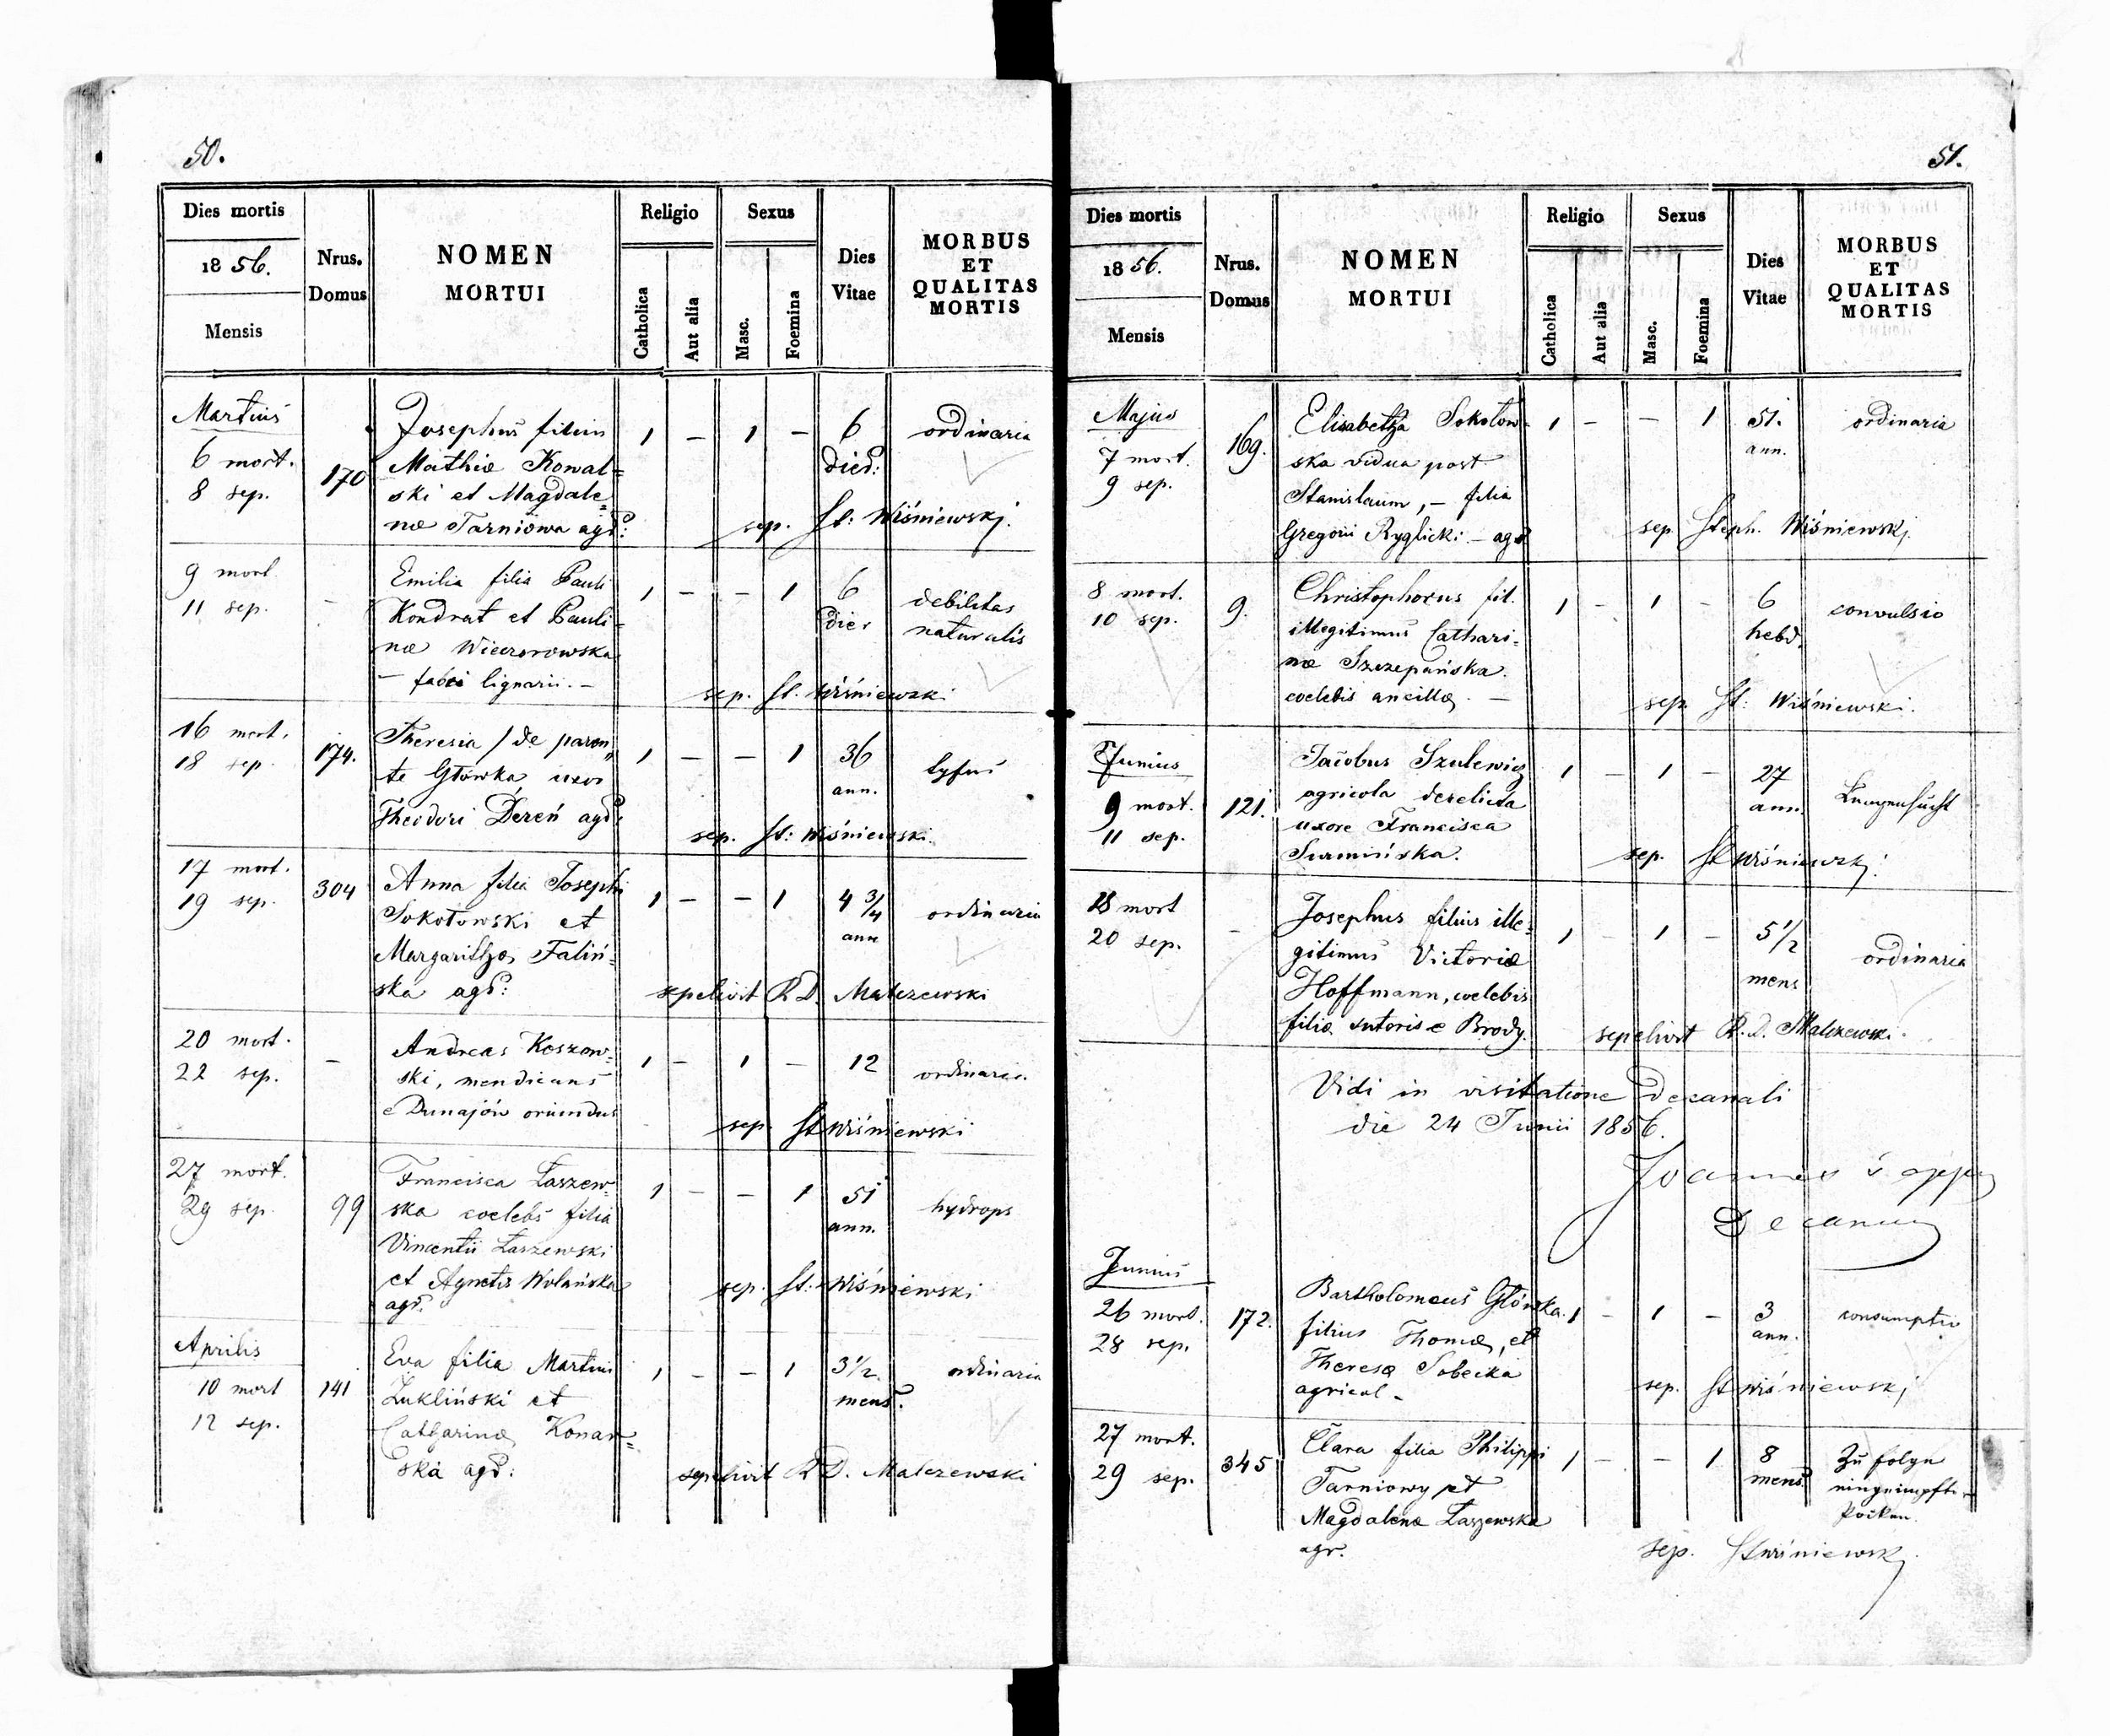 50.
Dies mortis
1856.
Mensis
Nrus.
Domus
NOMEN
MORTUI
Religio
Catholica
Aut alia
Sexus
Masc.
Foemina
Dies
Vitae
MORBUS
ET
QUALITAS
MORTIS
Martius
6 mort.
8 sep.
170
Josephus filius
Mathiæ Kowal=
ski et Magdale=
næ Tarniowa agr:
1 – 1 –
6
dier:
ordinaria
sep. St: Wiśniewski.
9 mort.
11 sep.
–
Emilia filia Pauli
Kondrat et Pauli=
næ Wieczorowska
– fabri lignarii. –
1 – – 1
6
dier
debilitas
naturalis
sep. St. Wiśniewski
16 mort.
18 sep.
174.
Theresia / de paren=
te Główka, uxor
Theodori Dereń agr:
1 – – 1
36
ann.
tyfus
sep. St: Wiśniewski.
17 mort.
19 sep.
304
Anna filia Josephi
Sokołowski et
Margarithæ Faliń=
ska agr:
1 – – 1
4 3/4
ann
ordinaria
sepelivit R D. Malczewski
20 mort.
22 sep.
–
Andreas Koszow=
ski, mendicans
e Dunajów oriundus
1 – 1 –
12
ordinaria.
sep. St Wiśniewski
27 mort.
29 sep.
99
Francisca Łaszew=
ska coelebs filia
Vincentii Łaszewski
et Agnetis Wolańska
agr.
1 – – 1
51
ann.
hydrops
sep. St: Wiśniewski
Aprilis
10 mort
12 sep.
141
Eva filia Martini
Żukliński et
Catharinæ Konar=
ska agr:
1 – – 1
3 1/2.
mens.
ordinaria
sepelivit R D. Malczewski
51.
Dies mortis
1856.
Mensis
Nrus.
Domus
NOMEN
MORTUI
Religio
Catholica
Aut alia
Sexus
Masc.
Foemina
Dies
Vitae
MORBUS
ET
QUALITAS
MORTIS
Majus
7 mort.
9 sep.
169.
Elisabetha Sokołow=
ska vidua post
Stanislaum, – filia
Gregorii Ryglicki – agr
1 – – 1
51.
ann.
ordinaria
sep. Steph. Wiśniewski.
8 mort.
10 sep.
9.
Christophorus fil.
illegitimus Cathari=
næ Szczepańska.
coelebis ancillæ. –
1 – 1 –
6
hebd.
convulsio
sep. St: Wiśniewski.
Junius
9 mort.
11 sep.
121.
Jacobus Szulewicz
agricola derelicta
uxore Francisca
Surmińska.
1 – 1 –
27
ann.
Lungensucht
sep. St Wiśniewski.
18 mort
20 sep.
–
Josephus filius ille=
gitimus Victoriæ
Hoffmann, coelebis
filiæ sutoris e Brody.
1 – 1 –
5 1/2
mens
ordinaria
sepelivit R. D. Malczewski.
Vidi in visitatione Decanali
die 24 Junii 1856.
Joannes
Decanus
Junius
26 mort.
28 sep.
172.
Bartholomeus Główka.
filius Thomæ, et
Theresæ Sobecka
agricol –
1 – 1 –
3
ann.
consumptio
sep. St Wiśniewski
27 mort.
29 sep.
345
Clara filia Philippi
Tarniowy et
Magdalenæ Łaszewska
agr.
1 – – 1
8
mens
Zu folgn
Pocken.
sep. St Wiśniewski.